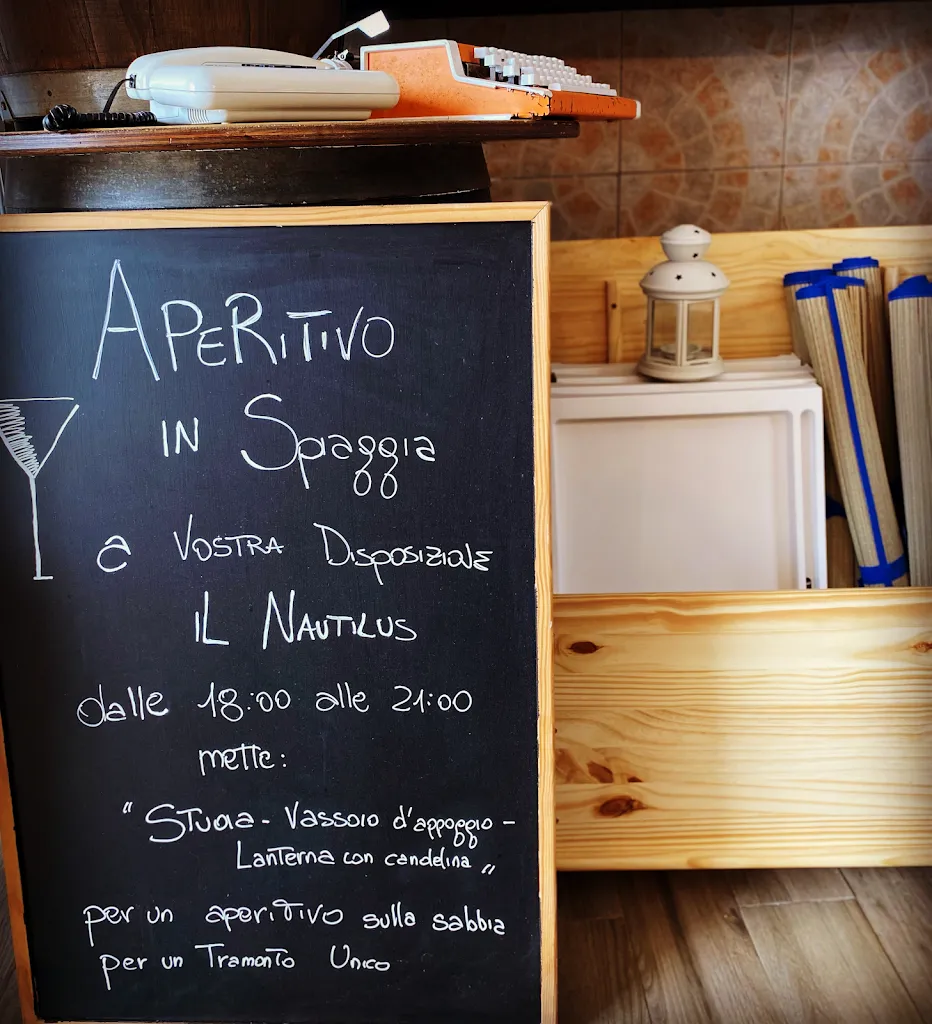 APERITIVO
IN SPIAGGIA
a VOSTRA DISPOSIZIONE
IL NAUTILUS
dalle 18:00 alle 21:00
mette:
"STUOIA - VASSOIO d'appoggio -
LANTERNA con candelina"
per un aperitivo sulla sabbia
per un TRAMONTO UNICO